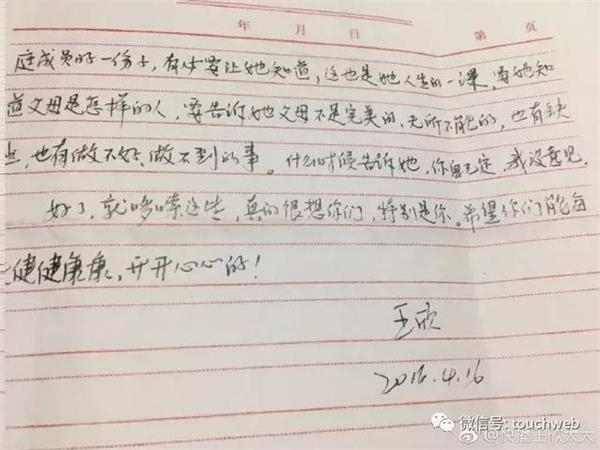 年 月 日 第 页
庭成员的一份子，有必要让她知道，这也是她人生的一课，要她知
道父母是怎样的人，要告诉她父母不是完美的、无所不能的，也有缺
点，也有做不好、做不到的事。什么时候告诉她，你自己定，我没意见。
好了，就哆嗦这些，真的很想你们，特别是你。希望你们能每
天健健康康，开开心心的！
王欣
2016.4.16
微信号: touchweb
@快播王欣太太